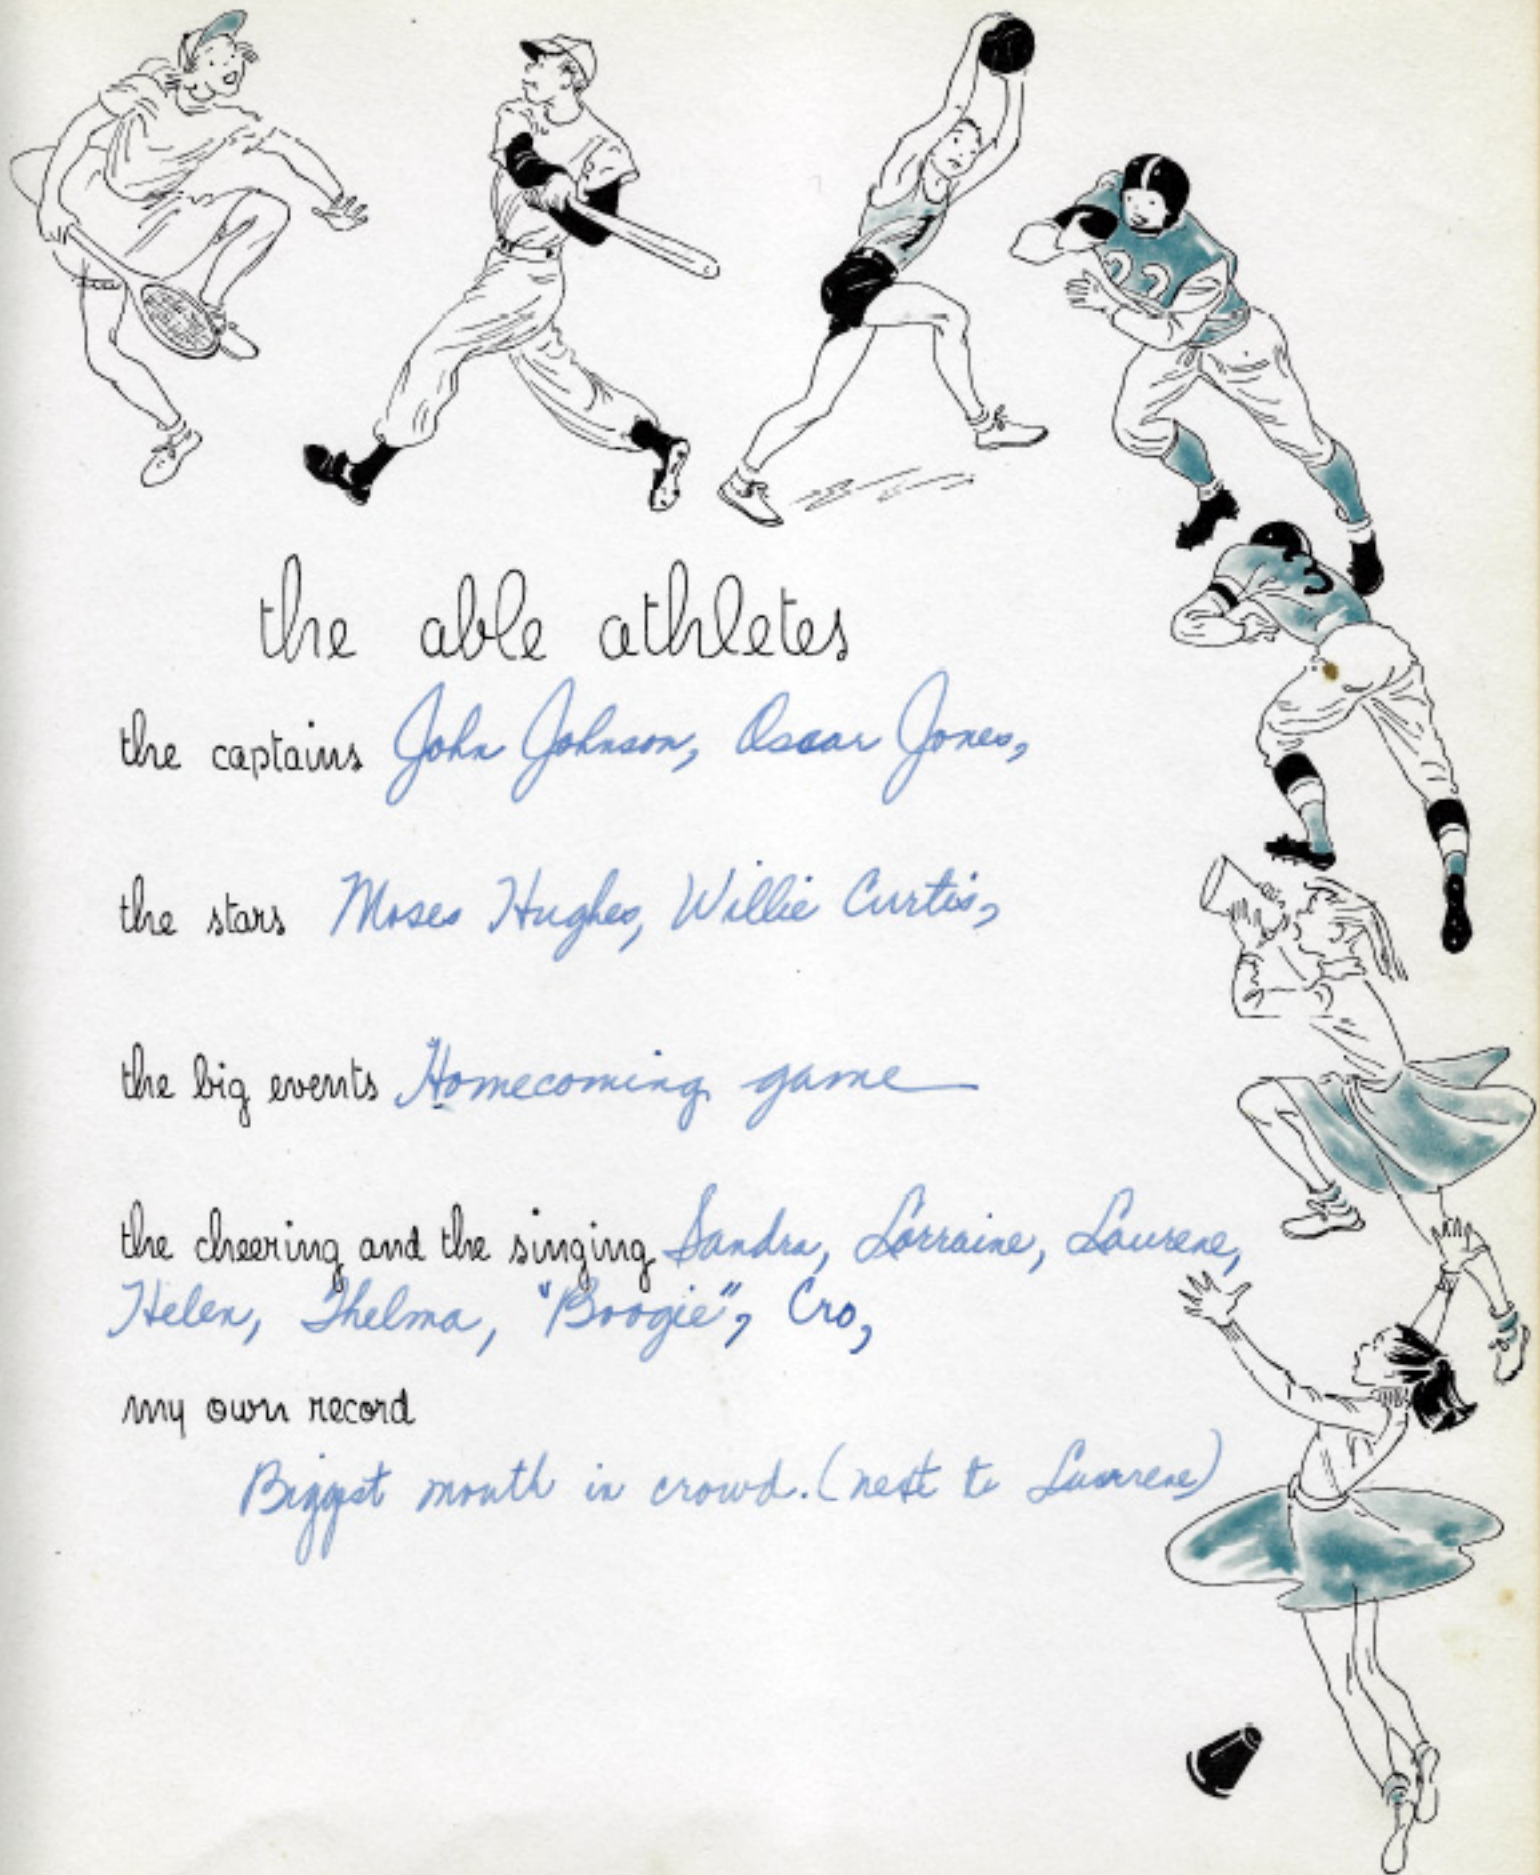 22
3
the able athletes
the captains John Johnson, Oscar Jones,
the stars Moses Hughes, Willie Curtis,
the big events Homecoming game
the cheering and the singing Sandra, Lorraine, Laurene,
Helen, Thelma, "Boogie", Cro,
my own record
Biggest mouth in crowd. (next to Laurene)